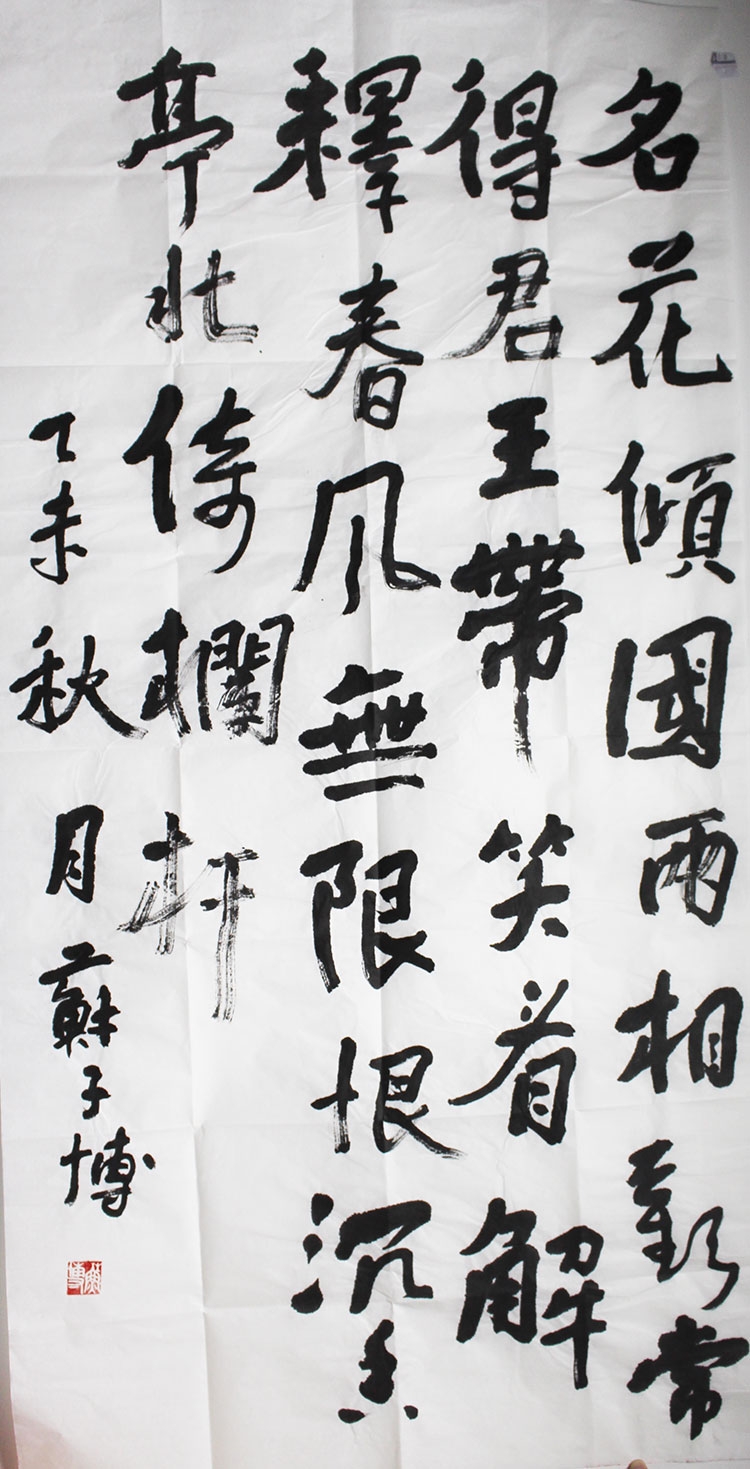 名花傾國兩相歡常
得君王帶笑看解
釋春風無限恨沉香
亭北倚欄杆
乙未秋月蘇子博